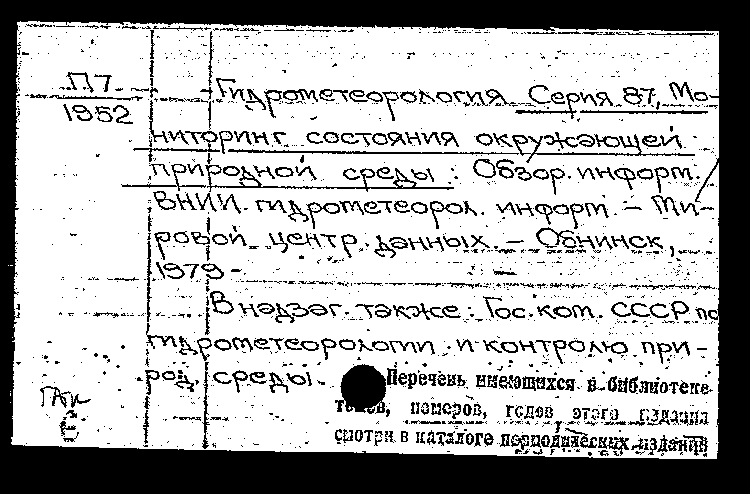 П7
1952
Гидрометеорология Серия 87, Мо-
ниторинг состояния окружающей
природной среды : Обзор. информ. /
ВНИИ гидрометеорол. информ. – Ми-
ровой центр данных. – Обнинск,
1979 -
В надзаг. также: Гос. ком. СССР по
гидрометеорологии и контролю при-
род. среды.
Перечень имеющихся в библиотеке
томов, номеров, годов этого издания
смотри в каталоге периодических изданий